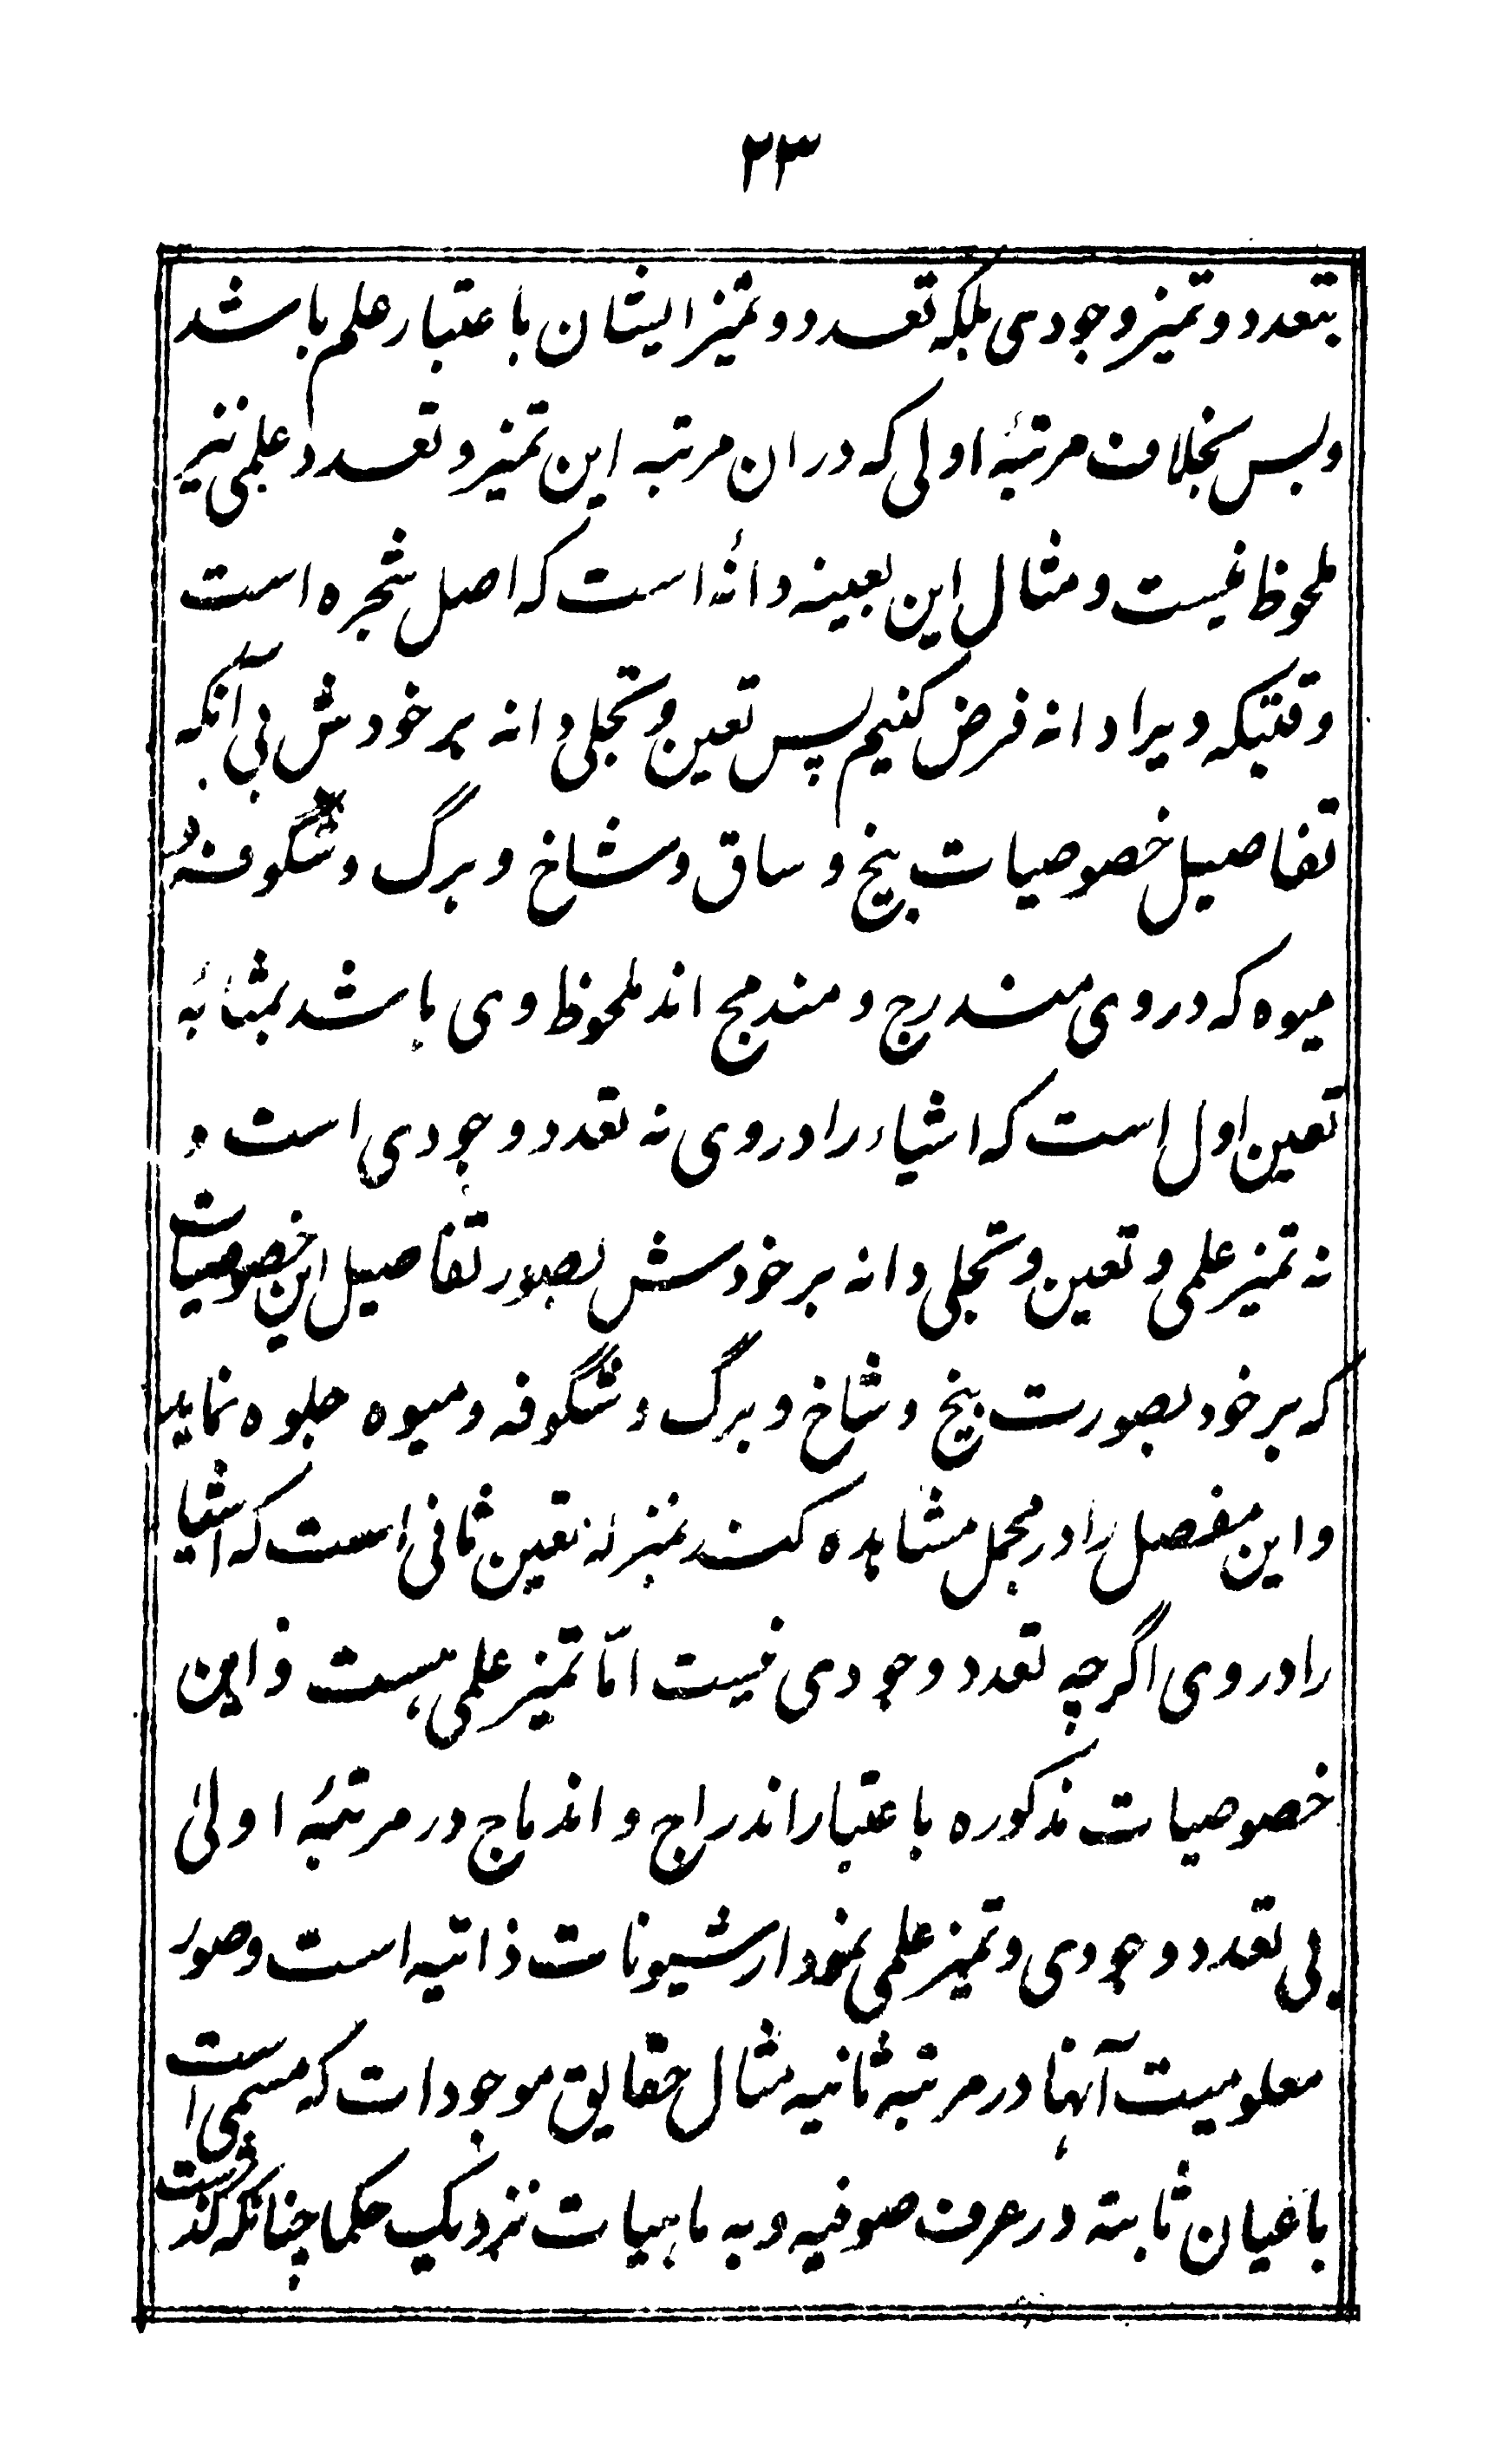 ۲۳
بتعدد و تمیز وجودی بلکه تعدد و تمیز ایشان باعتبار علم باشد
و بس بخلاف مرتبۂ اولی که دران مرتبه این تمیز و تعدد علمی نیز
ملحوظ نیست و مثال این بعینه دانۂ است که اصل شجره است
وقتیکه ویرا دانه فرض کنیم پس تعین و تجلی دانه بر خودش بی آنکه
تفاصیل خصوصیات بیخ و ساق و شاخ و برگ و شگوفه و
میوه که دروی مندرج و مندمج اند ملحوظ وی باشد بمثابۂ
تعین اول است که اشیاء را دروی نه تعدد وجودی است و
نه تمیز علمی و تعین و تجلی دانه بر خودش بصور تفاصیل این خصوصیات
که بر خود بصورت بیخ و شاخ و برگ و شگوفه و میوه جلوه نماید
و این مفصل را در مجمل مشاهده کند بمنزلۂ تعین ثانی است که اشیا
را دروی اگرچه تعدد وجودی نیست امّا تمیز علمی هست و این
خصوصیات مذکوره باعتبار اندراج و اندماج در مرتبۂ اولیٰ
بی تعدد وجودی و تمیز علمی نمودار شیونات ذاتیه است و صور
معلومیت آنها در مرتبه ثانیه مثال حقایق موجودات که مسمی است
باعیان ثابته در عرف صوفیه و به ماهیات نزدیک حکما چنانکه گذشت